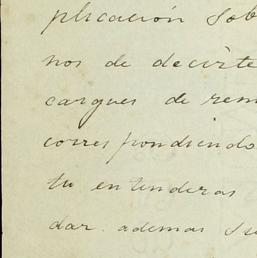 plicación sob
nos de decirte
cargues de rem
correspondiendo
tu entenderas
dar. ademas su